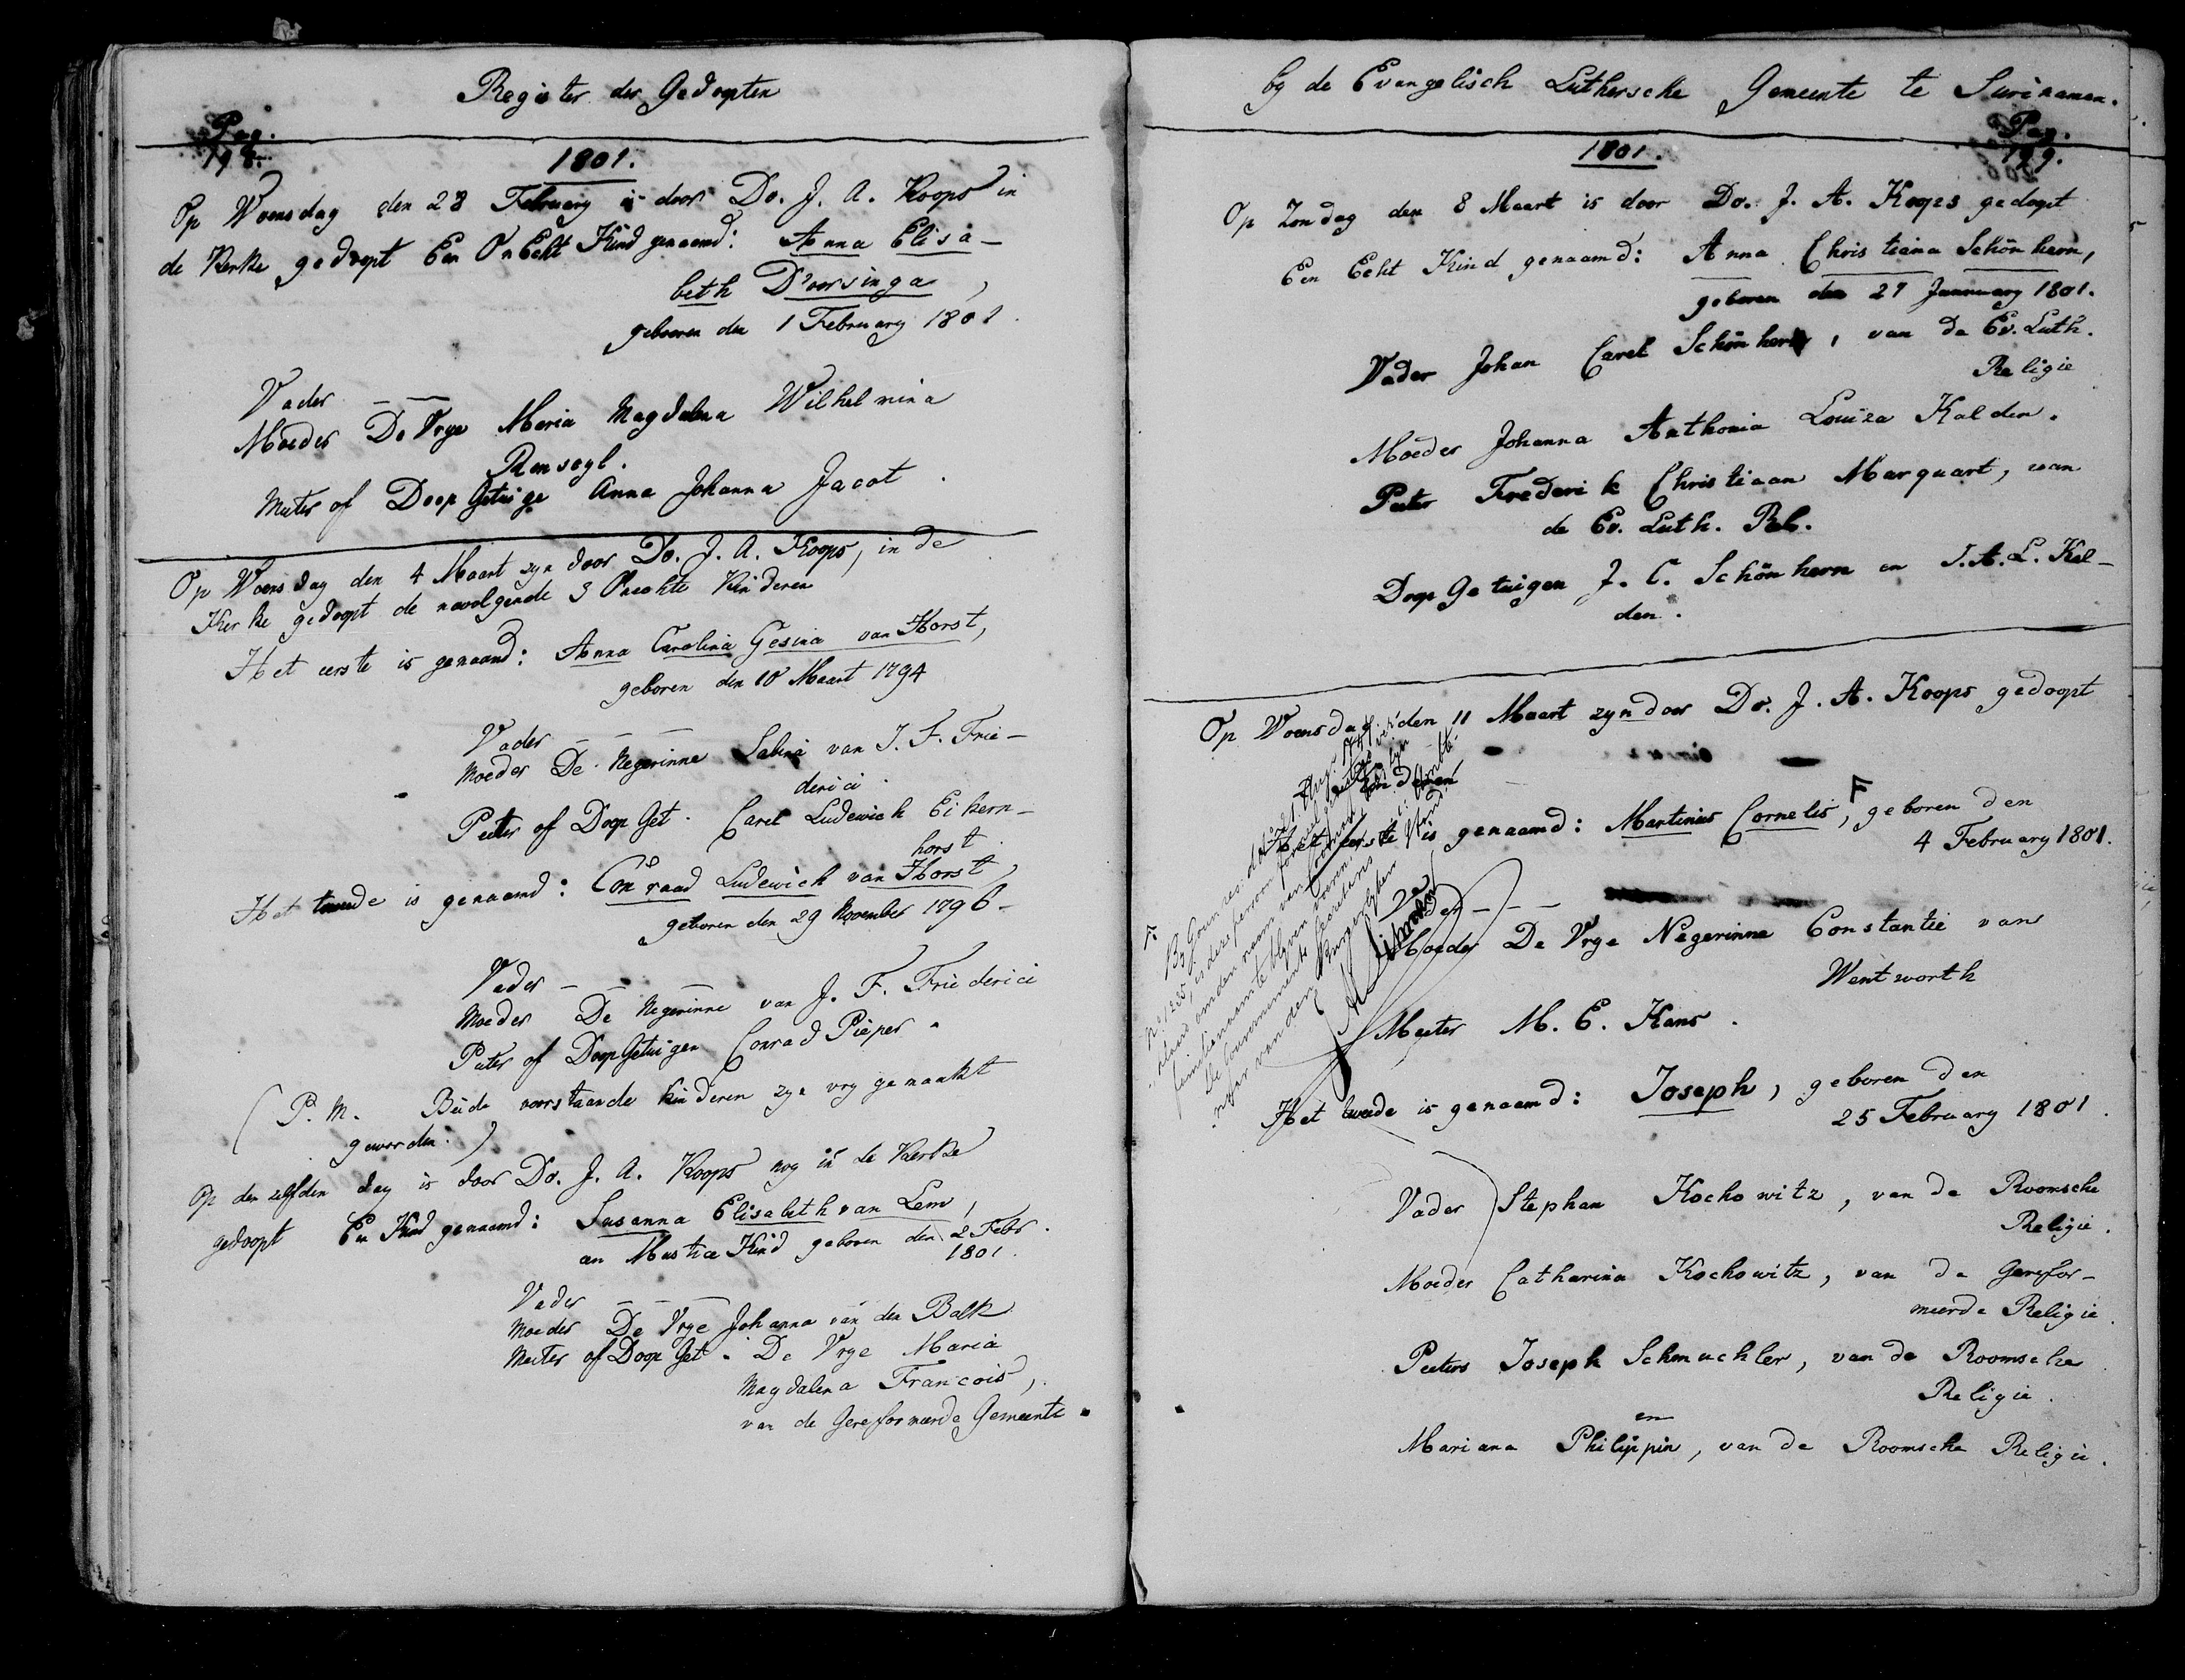 Register der Gedoopten
Pag.
198.
1801.
Op Woensdag den 28 February is door Do. J. A. Koops in
de Kerke gedoopt Een OnEcht Kind genaamd: Anna Elisa-
beth D'oorsinga,
gebooren den 1 February 1801.
Vader — —
Moeder De Vrye Maria Magdalena Wilhelmina
Remseyl.
Meter of Doop Getuige Anna Johanna Jacot.
Op Woensdag den 4 Maart zyn door Do. J. A. Koops, in de
Kerke gedoopt de navolgende 3 Onechte Kinderen
Het eerste is genaamd: Anna Carolina Gesina van Horst,
geboren den 10 Maart 1794
Vader — — —
Moeder De Negerinne Sabina van J. F. Frie-
derici
Peeter of Doop Get. Carel Ludewich Eikern-
horst
Het tweede is genaamd: Conraad Ludewich van Horst,
geboren den 29 November 1796-
Vader — — —
Moeder De Negerinne van J. F. Friederici
Peter of DoopGetuigen Conrad Pieper.
(P. M. Beide voorstaande kinderen zyn vry gemaakt
geworden.)
Op den zelfden dag is door Do. J. A. Koops nog in de Kerke
gedoopt Een Kind genaamd: Susanna Elisabeth van Lem,
en Mustice Kind geboren den 2 Febr.
1801.
Vader — — —
Moeder De Vrye Johanna van den Balk
Meeter of Doop Get. De Vrye Maria
Magdalena Francois,
van de Gereformeerde Gemeente.
by de Evangelisch Luthersche Gemeente te Surinamen.
Pag.
199.
1801.
Op Zondag den 8 Maart is door Do. J. A. Koops gedoopt
Een Echt Kind genaamd: Anna Christiana Schönhern,
geboren den 27 Jannuary 1801.
Vader Johan Carel Schönhern, van de Ev. Luth.
Religie
Moeder Johanna Anthonia Louiza Kalden.
Peter Frederik Christiaan Marquart, van
de Ev. Luth. Rel.
Doop Getuigen J. C. Schönhern en J. A. L. Kel-
den.
Op Woensdag den 11 Maart zyn door Do. J. A. Koops gedoopt
kinderen
Het eerste is genaamd: Martinus Cornelis, F geboren den
4 February 1801.
Vader — — —
Moeder De Vrye Negerinne Constantie van
Wentworth
Meeter M. E. Kans.
F. By Gouv. res. d.d. 21 Aug.
No. 1235, is deze persoon
onder den naam van
familienaam te blyven voeren.
De Gouvernements Secretaris
van den Burgerlyken Stand
Het tweede is genaamd: Joseph, geboren den
25 February 1801.
Vader Stephan Kochowitz, van de Roomsche
Religie.
Moeder Catharina Kochowitz, van de Gerefor-
meerde Religie.
Peeters Joseph Schmuchler, van de Roomsche
Religie.
en
Mariana Philippin, van de Roomsche Religie.